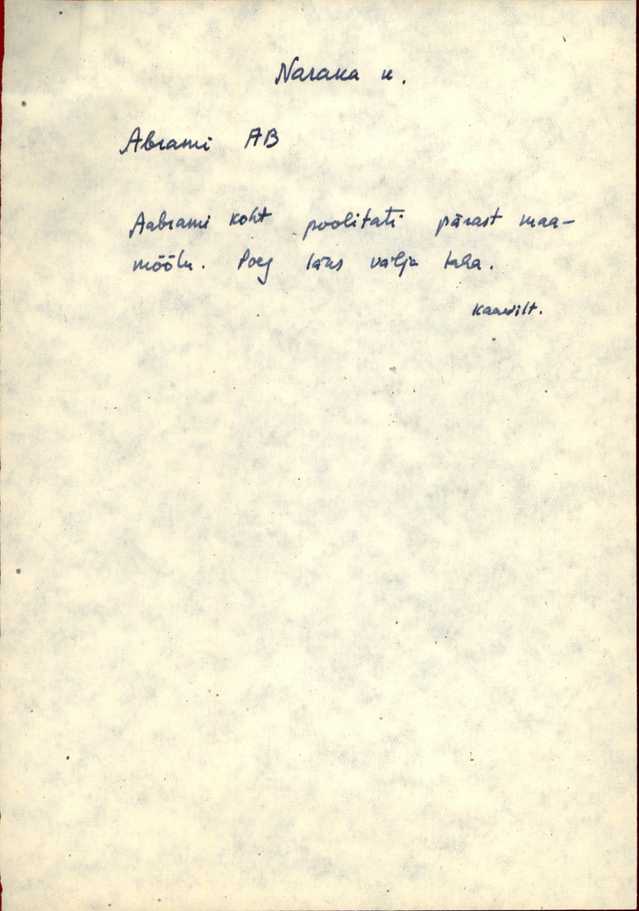 Naraka k.
Abrami AB
Aabrami koht poolitati pärast maa-
mõõtu. Poeg läks välja taha.
Kaardilt.